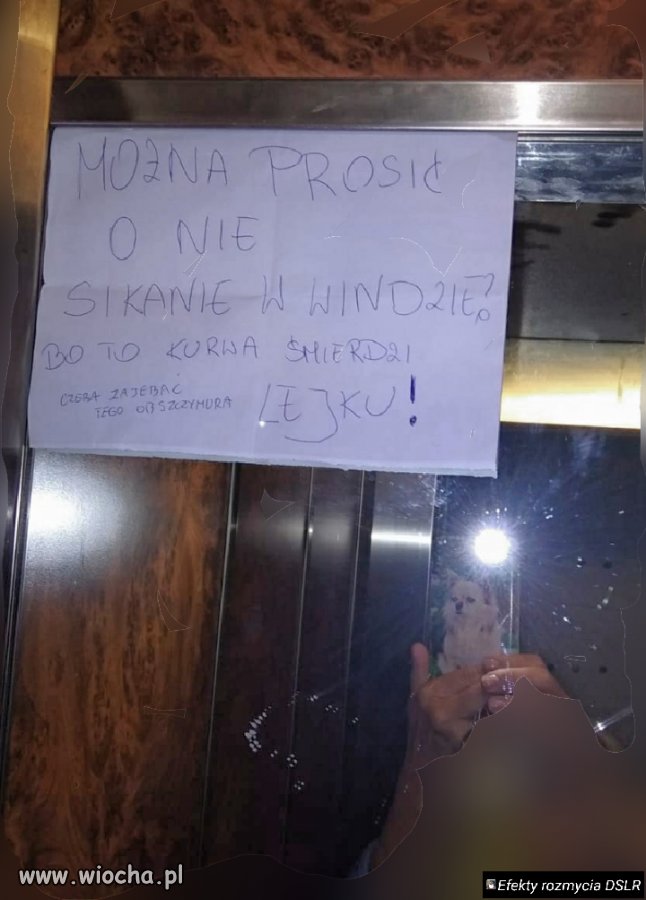 MOŻNA PROSIĆ
O NIE
SIKANIE W WINDZIE?
BO TO KURWA ŚMIERDZI
CZEBA ZAJEBAĆ
TEGO OBSZCZYMURA
LEJKU!
www.wiocha.pl
Efekty rozmycia DSLR